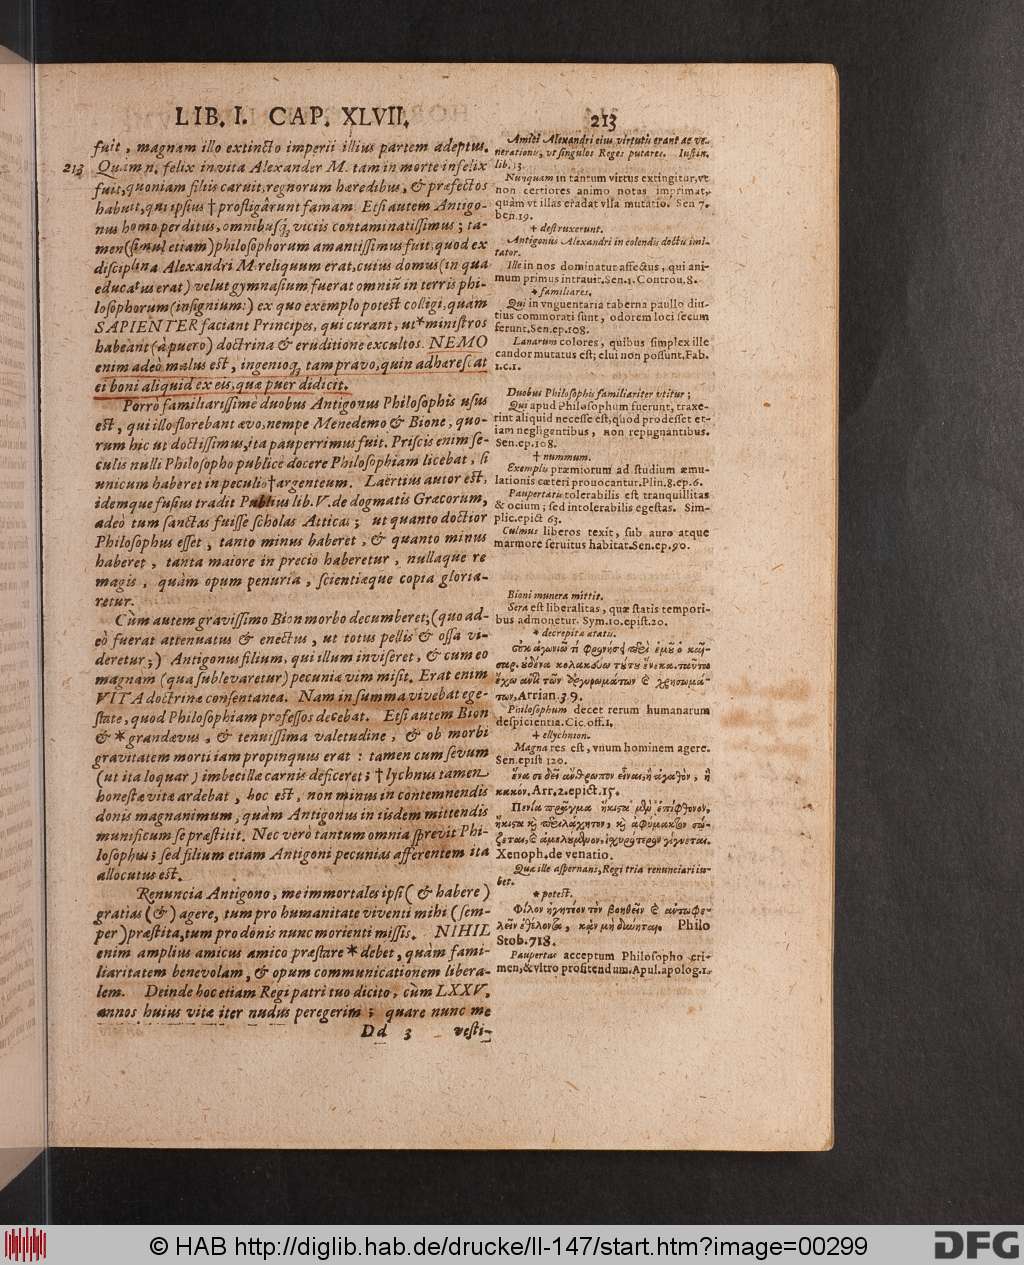 LIB. I. CAP. XLVII. 213
fuit, magnam illo extincto imperii illius partem adeptus.
213 Quam n. felix in vita Alexander M. tam in morte infelix
fuit, quoniam filiis caruit, regnorum hæredibus, & præfectos
habuit, qui ipsius † profligârunt famam. Etsi autem Antigo-
nus homo perditus, omnibusq́; vitiis contaminatissimus; ta-
men (simul etiam) philosophorum amantissimus fuit, quod ex
disciplina Alexandri M. reliquum erat, cuius domus (in qua
educatus erat) velut gymnasium fuerat omniũ in terris phi-
losophorum (insignium:) ex quo exemplo potest colligi, quàm
SAPIENTER faciant Principes, qui curant, ut * ministros
habeant (à puero) doctrina & eruditione excultos. NEMO
enim adeò malus est, ingenioq́; tam pravo, quin adhærescat
ei boni aliquid ex eis, quæ puer didicit.
Porrò familiarissimè duobus Antigonus Philosophis usus
est, qui illo florebant ævo, nempe Menedemo & Bione, quo-
rum hic ut doctissimus, ita pauperrimus fuit. Priscis enim se-
culis nulli Philosopho publicè docere Philosophiam licebat, si
unicum haberet in peculio † argenteum. Laërtius autor est,
idemque fusius tradit Publius lib. V. de dogmatis Græcorum,
adeò tum sanctas fuisse scholas Atticas; ut quanto doctior
Philosophus esset, tanto minus haberet, & quanto minus
haberet, tanta maiore in precio haberetur, nullaque re
magis, quàm opum penuria, scientiæque copia gloria-
retur.
Cùm autem gravissimo Bion morbo decumberet; (quo ad-
eò fuerat attenuatus & enectus, ut totus pellis & ossa vi-
deretur;) Antigonus filium, qui illum inviseret, & cum eo
magnam (qua sublevaretur) pecuniæ vim misit. Erat enim
VITA doctrinæ consentanea. Nam in summa vivebat ege-
state, quod Philosophiam professos decebat. Etsi autem Bion
& * grandævus, & tenuissima valetudine, & ob morbi
gravitatem morti iam propinquus erat: tamen cum sevum
(ut ita loquar) imbecillæ carnis deficeret; † lychnus tamen
honestæ vitæ ardebat, hoc est, non minus in contemnendis
donis magnanimum, quàm Antigonus in iisdem mittendis
munificum se præstitit. Nec verò tantum omnia sprevit Phi-
losophus; sed filium etiam Antigoni pecunias afferentem ita
allocutus est.
Renuncia Antigono, me immortales ipsi (& habere)
gratias (&) agere, tum pro humanitate viventi mihi (sem-
per) præstita, tum pro donis nunc morienti missis. NIHIL
enim amplius amicus amico præstare * debet, quàm fami-
liaritatem benevolam, & opum communicationem libera-
lem. Deinde hoc etiam Regi patri tuo dicito, cùm LXXV.
annos huius vitæ iter nudus peregerim; quare nunc me
Dd 3 vesti-
Amici Alexandri eius virtutis erant ac ve-
nerationis, vt singulos Reges putares. Iustin.
lib. 13.
Nunquam in tantum virtus extingitur, vt
non certiores animo notas imprimat,
quàm vt illas eradat vlla mutatio. Sen 7.
ben. 19.
† destruxerunt.
Antigonus Alexandri in colendis doctis imi-
tator.
Ille in nos dominatur affectus, qui ani-
mum primus intrauit. Sen. 1. Controu. 8.
* familiares.
Qui in vnguentaria taberna paullo diu-
tius commorati sunt, odorem loci secum
ferunt. Sen. ep. 108.
Lanarum colores, quibus simplex ille
candor mutatus est; elui non possunt. Fab.
1. c. 1.
Duobus Philosophis familiariter vtitur;
Qui apud Philosophum fuerunt, traxe-
rint aliquid necesse est, quod prodesset et-
iam negligentibus, non repugnantibus.
Sen. ep. 108.
† nummum.
Exemplis præmiorum ad studium æmu-
lationis cæteri prouocantur. Plin. 8. ep. 6.
Paupertatis tolerabilis est tranquillitas
& ocium; sed intolerabilis egestas. Sim-
plic. epict 63.
Culmus liberos texit, sub auro atque
marmore seruitus habitat. Sen. ep. 90.
Bioni munera mittit.
Sera est liberalitas, quæ statis tempori-
bus admonetur. Sym. 10. epist. 20.
* decrepita ætatis.
οὐκ ἀγωνιῶ τί φρονήσῃ περὶ ἐμοῦ ὁ καῖ-
σαρ. οὐδένα κολακεύω τούτου ἕνεκα. ταῦτα
ἔχω ἀντὶ τῶν ἀργυρωμάτων & χρυσωμά-
των, Arrian. 3. 9.
Philosophum decet rerum humanarum
despicientia. Cic. off. 1.
† ellychnion.
Magna res est, vnum hominem agere.
Sen. epist 120.
ἕνα σε δεῖ ἄνθρωπον εἶναι, ἢ ἀγαθὸν, ἢ
κακόν. Arr. 2. epict. 15.
Πενία πρᾶγμα ἥκιστα μὲν ἐπίφθονον,
ἥκιστα καὶ περιμάχητον, καὶ ἀφύλακτον σώ-
ζεται, & ἀμελούμενον, ἰσχυρότερον γίγνεται.
Xenoph. de venatio.
Quæ ille aspernans, Regi tria renunciari iu-
bet.
* potest.
Φίλον ἡγητέον τὸν βοηθεῖν & ἀντωφε-
λεῖν ἐθέλοντα, κἂν μὴ δύνηται. Philo
Stob. 718.
Paupertas acceptum Philosopho cri-
men, & vltro profitendum. Apul. apolog. 1.
© HAB http://diglib.hab.de/drucke/ll-147/start.htm?image=00299
DFG